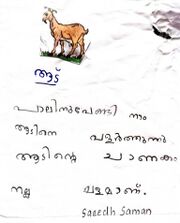 ആട്
പാലിനുവേണ്ടി നാം
ആടിനെ വളർത്തുന്നു
ആടിന്റെ ചാണകം
നല്ല വളമാണ്.
Saeedh Saman